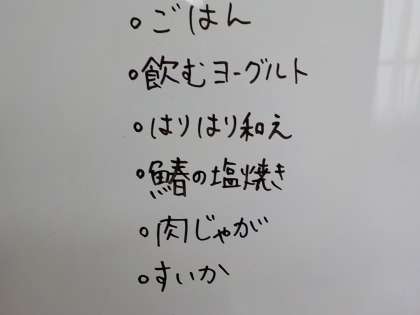 ○ごはん
○飲むヨーグルト
○はりはり和え
○鰆の塩焼き
○肉じゃが
○すいか